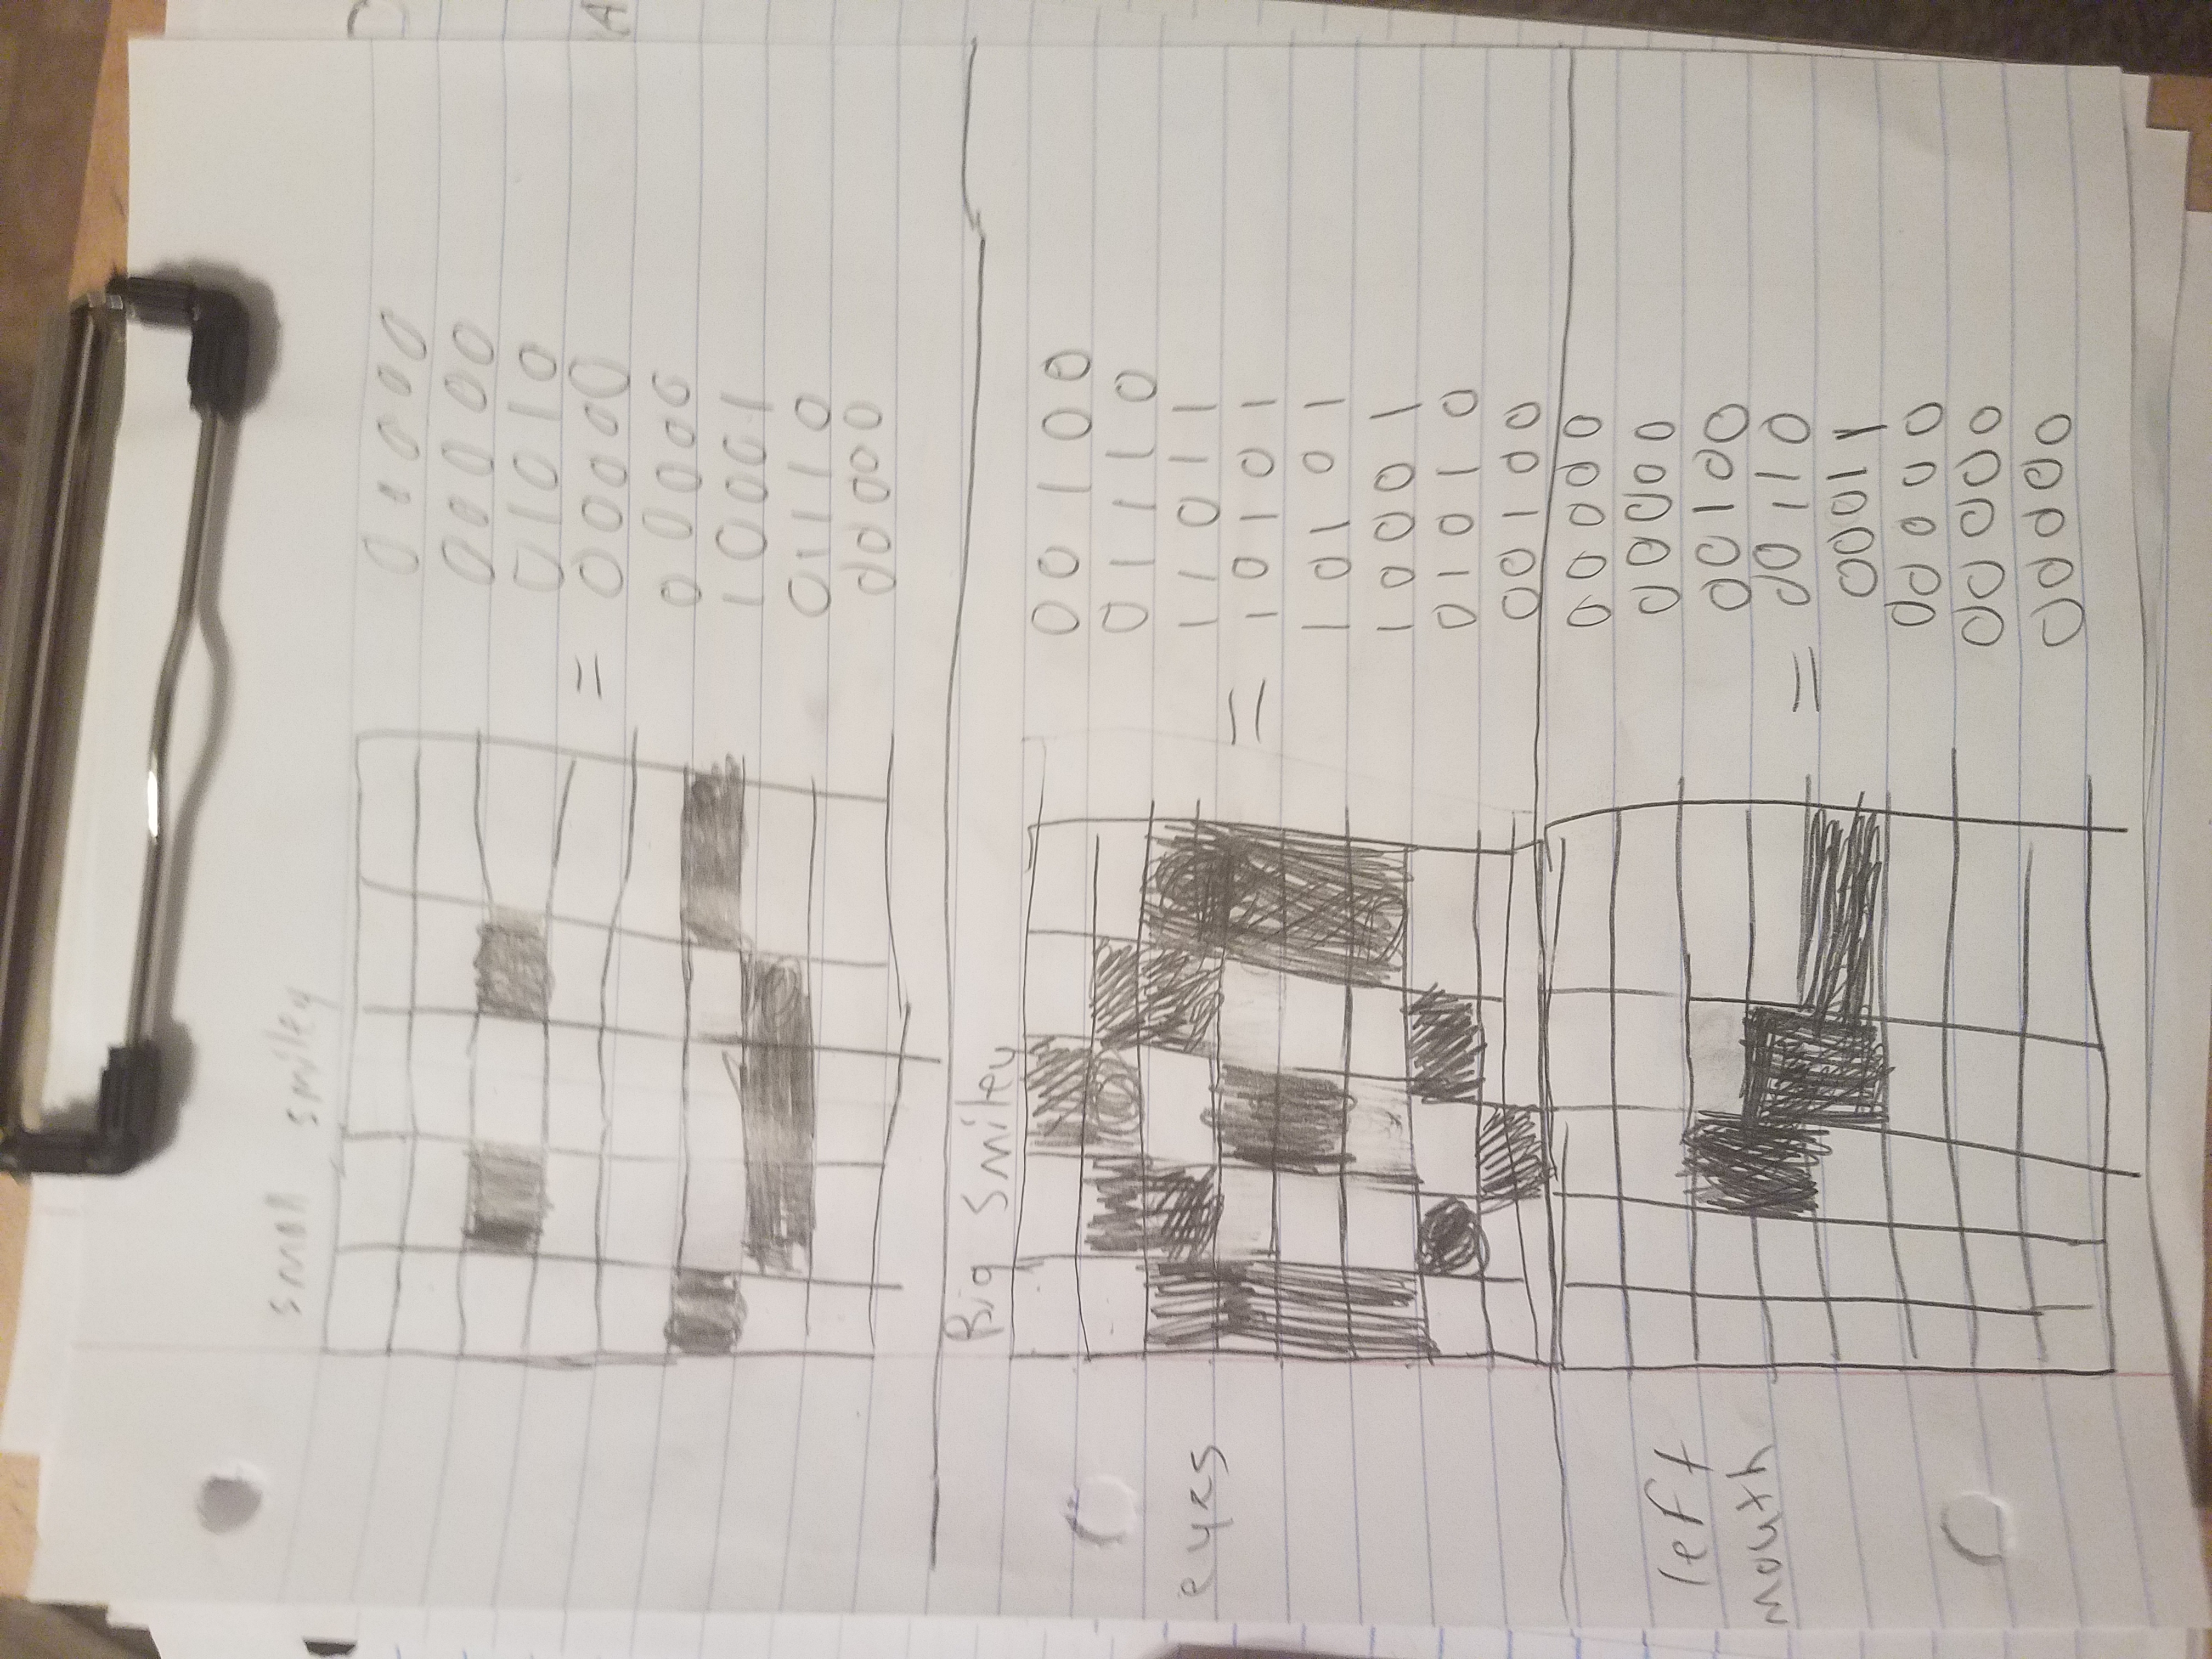 small smiley
0 0 0 0 0
0 0 0 0 0
0 1 0 1 0
= 0 0 0 0 0
0 0 0 0 0
1 0 0 0 1
0 1 1 1 0
0 0 0 0 0
Big Smiley
0 0 1 0 0
0 1 1 1 0
eyes 1 1 0 1 1
= 1 0 1 0 1
1 0 1 0 1
1 0 0 0 1
0 1 0 1 0
0 0 1 0 0
0 0 0 0 0
0 0 0 0 0
left 0 0 1 0 0
mouth = 0 0 1 1 0
0 0 0 1 1
0 0 0 0 0
0 0 0 0 0
0 0 0 0 0